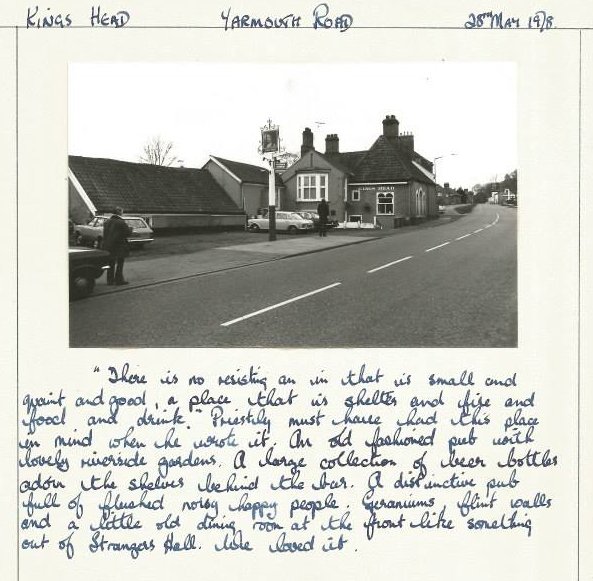 KINGS HEAD YARMOUTH ROAD 28TH MAY 1978
KINGS HEAD
"There is no resisting an in that is small and
quaint and good, a place that is shelter and fire and
food and drink." Priestly must have had this place
in mind when he wrote it. An old fashioned pub with
lovely riverside gardens. A large collection of beer bottles
adorn the shelves behind the bar. A distinctive pub
full of flushed noisy happy people. Geraniums, flint walls
and a little old dining room at the front like something
out of Strangers Hall. We loved it.